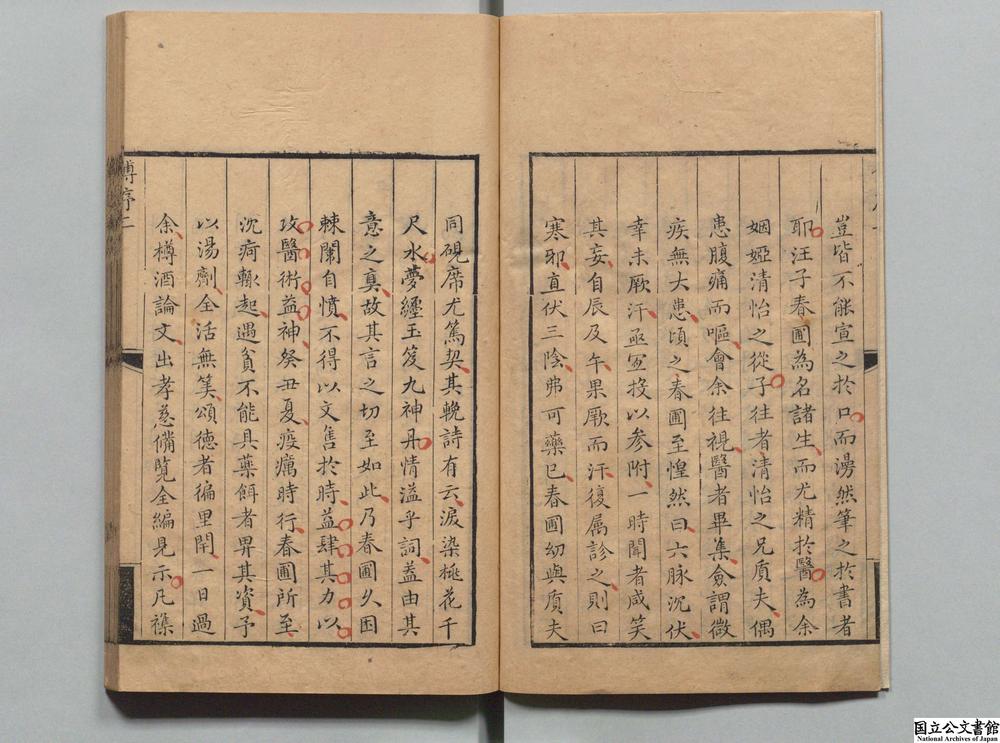 豈皆不能宣之於口而湯然筆之於書者
耶汪子春圃為名諸生而尤精於醫為余
姻婭清怡之從子往者清怡之兄質夫偶
患腹痛而嘔會余往視醫者畢集僉謂微
疾無大患頃之春圃至惶然曰六脉沉伏
幸未厥汗亟宜投以參附一時聞者咸笑
其妄自辰及午果厥而汗復属診之則曰
寒邪直伏三陰弗可藥已春圃幼與質夫
同硯席尤篤契其輓詩有云淚染桃花千
尺水夢纏玉笈九神丹情溢乎詞蓋由其
意之真故其言之切至如此乃春圃久困
棘闈自憤不得以文售於時益肆其力以
攻醫術益神癸丑夏疫癘時行春圃所至
沈疴輒起遇貧不能具藥餌者畀其資予
以湯劑全活無筭頌德者徧里閈一日過
余樽酒論文出孝慈備覽全編見示凡襍
序二
国立公文書館
National Archives of Japan